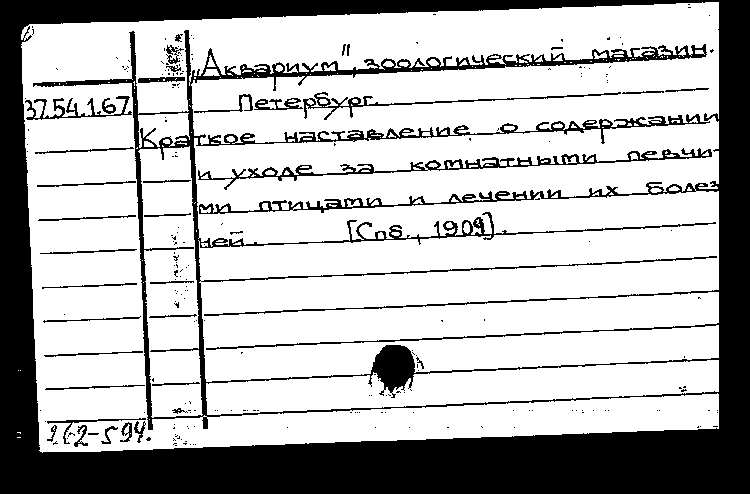 „Аквариум", зоологический магазин.
37.54.1.67. Петербург.
Краткое наставление о содержании
и уходе за комнатными певчи-
ми птицами и лечении их болез
ней. [Спб., 1909].
262-594.